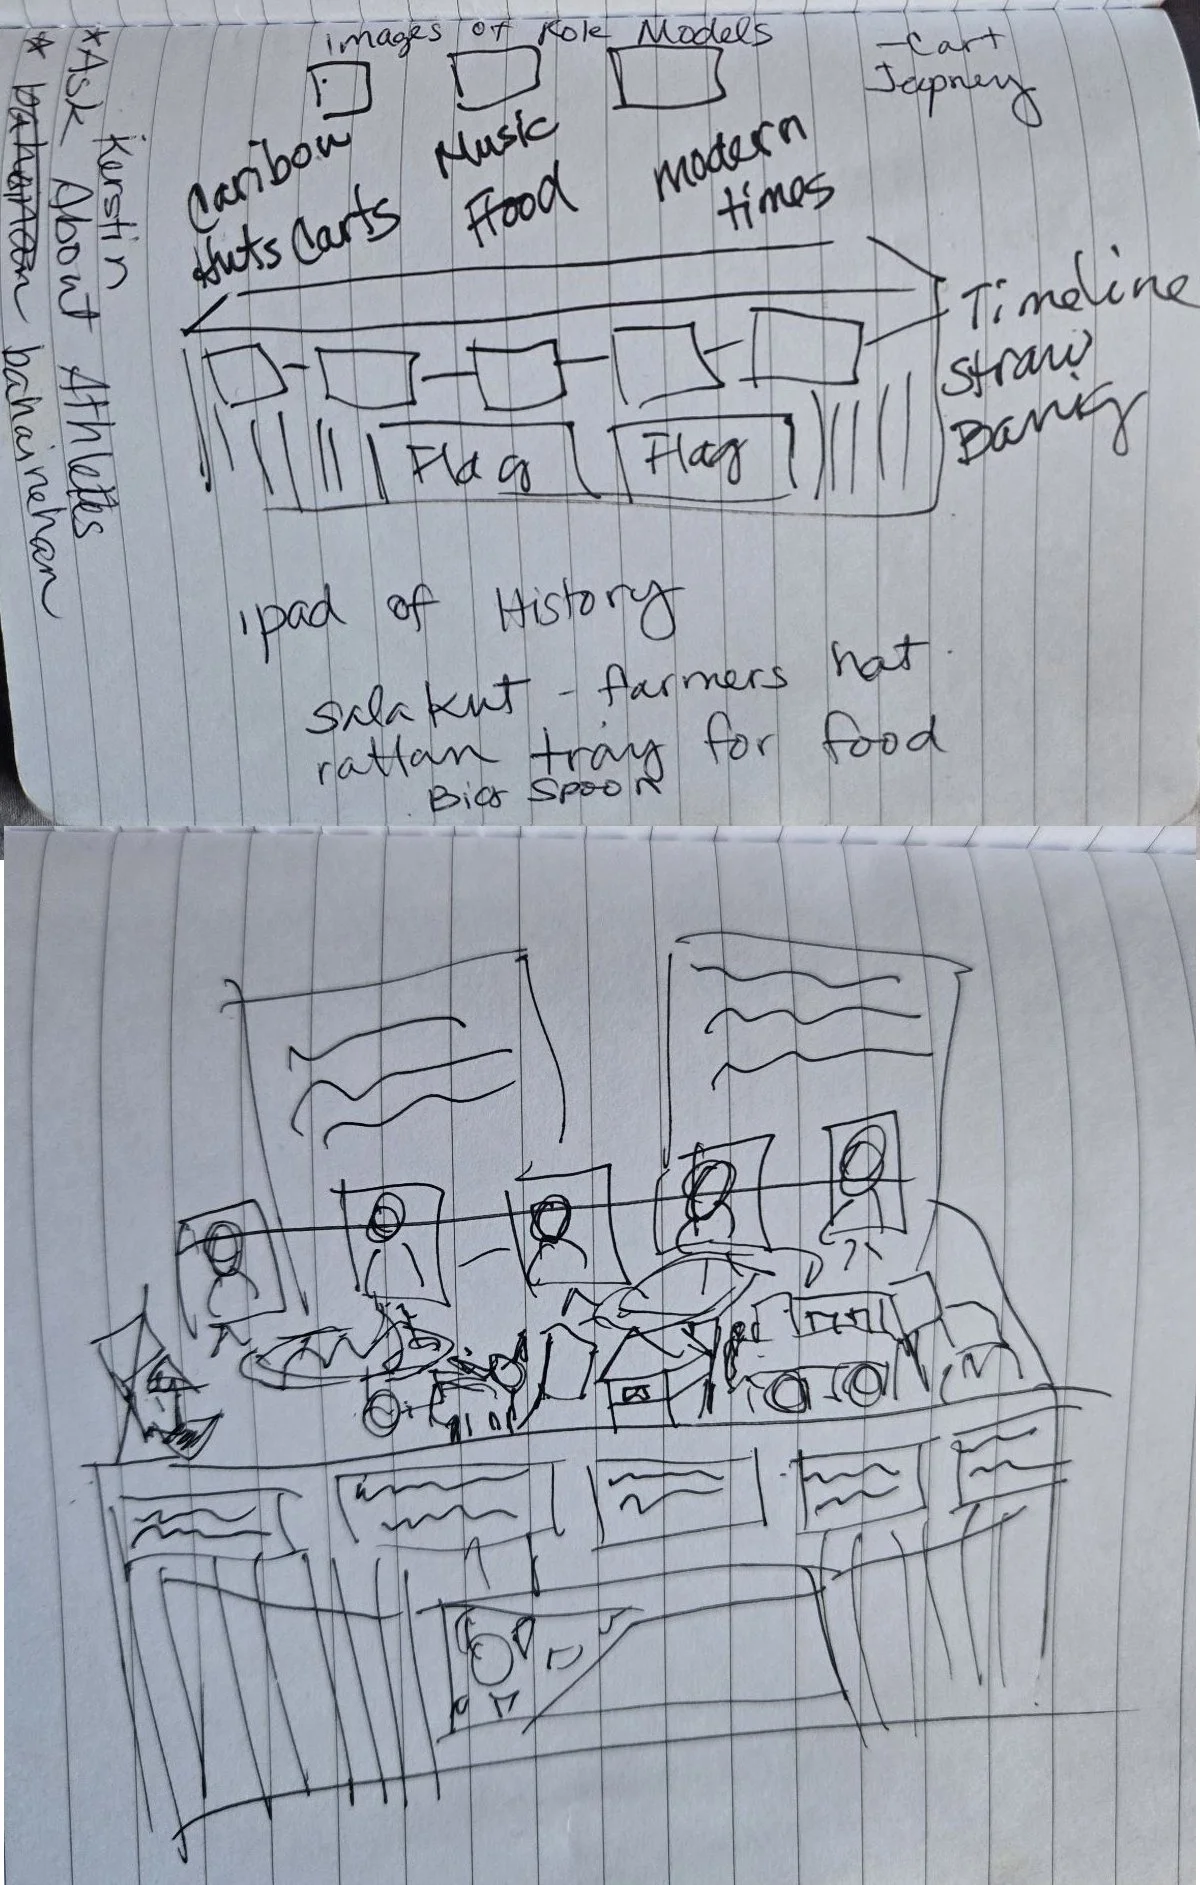 Images of Role Models
-Cart
Jeepney
Caribou
Huts Carts
Music
Food
modern
times
Timeline
straw
Flag
Flag
ipad of History
salakut - farmers hat
rattan tray for food
Big Spoon
Kerstin
*Ask About Athletes